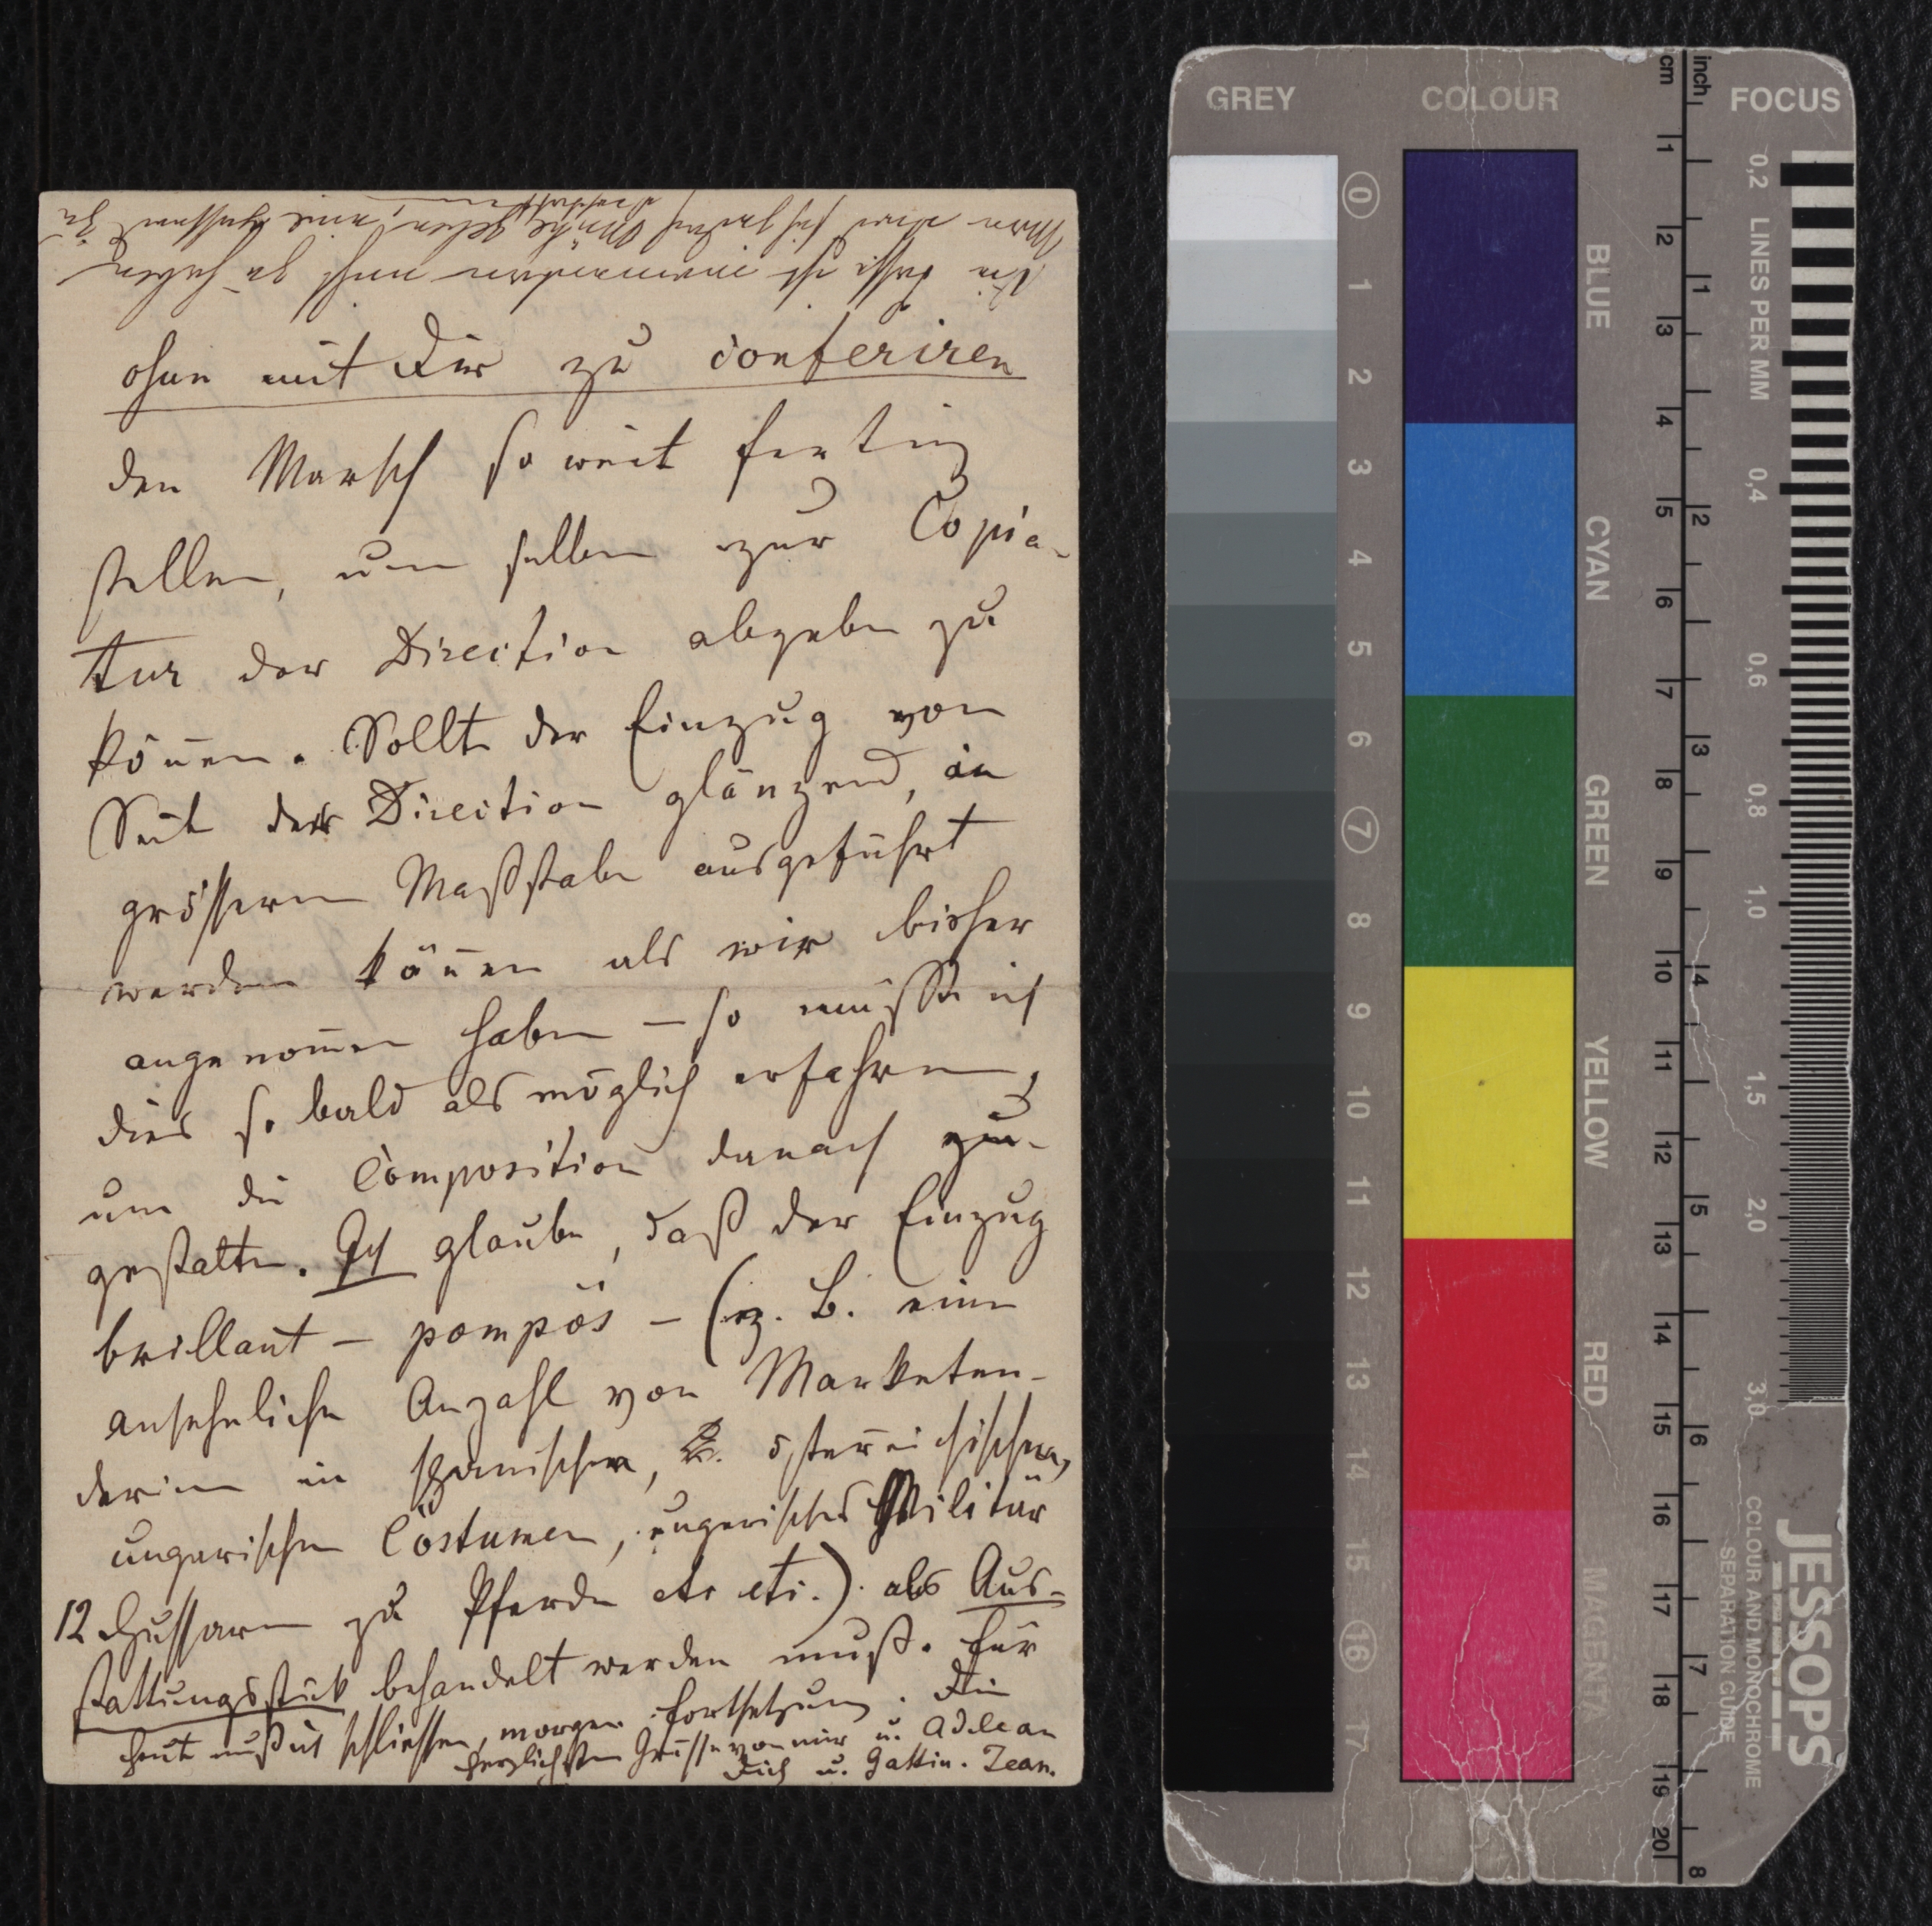 ohne mit Dir zu conferiren
den Marsch so weit fertig
stellen, um selben zur Copia-
tur der Direction abgeben zu
kön̄en. Sollte der Einzug von
Seite der Direction glänzend, in
grösserem Maßstabe ausgeführt
werden kön̄en als wir bisher
angenom̄en haben – so müßte ich
dies so bald als möglich erfahren,
um die Composition danach zu
gestalten. Ich glaube, daß der Einzug
brillant – pompös – (z. B. eine
ansehnliche Anzahl von Marketen-
derinen in spanischen, österreichischen,
ungarischen Costümen, ungarisches Militär
12 Hussaren zu Pferde etc etc.) als Aus-
stattungsstück behandelt werden muß. Für
heute muß ich schliessen, morgen Fortsetzung. Die
herzlichsten Grüsse von mir u. Adele an
Dich u. Gattin. Jean.
GREY COLOUR FOCUS
cm inch
0 1 2 3 4 5 6 7 8 9 10 11 12 13 14 15 16 17
BLUE
CYAN
GREEN
YELLOW
RED
MAGENTA
1 2 3 4 5 6 7 8 9 10 11 12 13 14 15 16 17 18 19 20
1 2 3 4 5 6 7 8
LINES PER MM
0,2 0,4 0,6 0,8 1,0 1,5 2,0 3,0
JESSOPS
COLOUR AND MONOCHROME
SEPARATION GUIDE